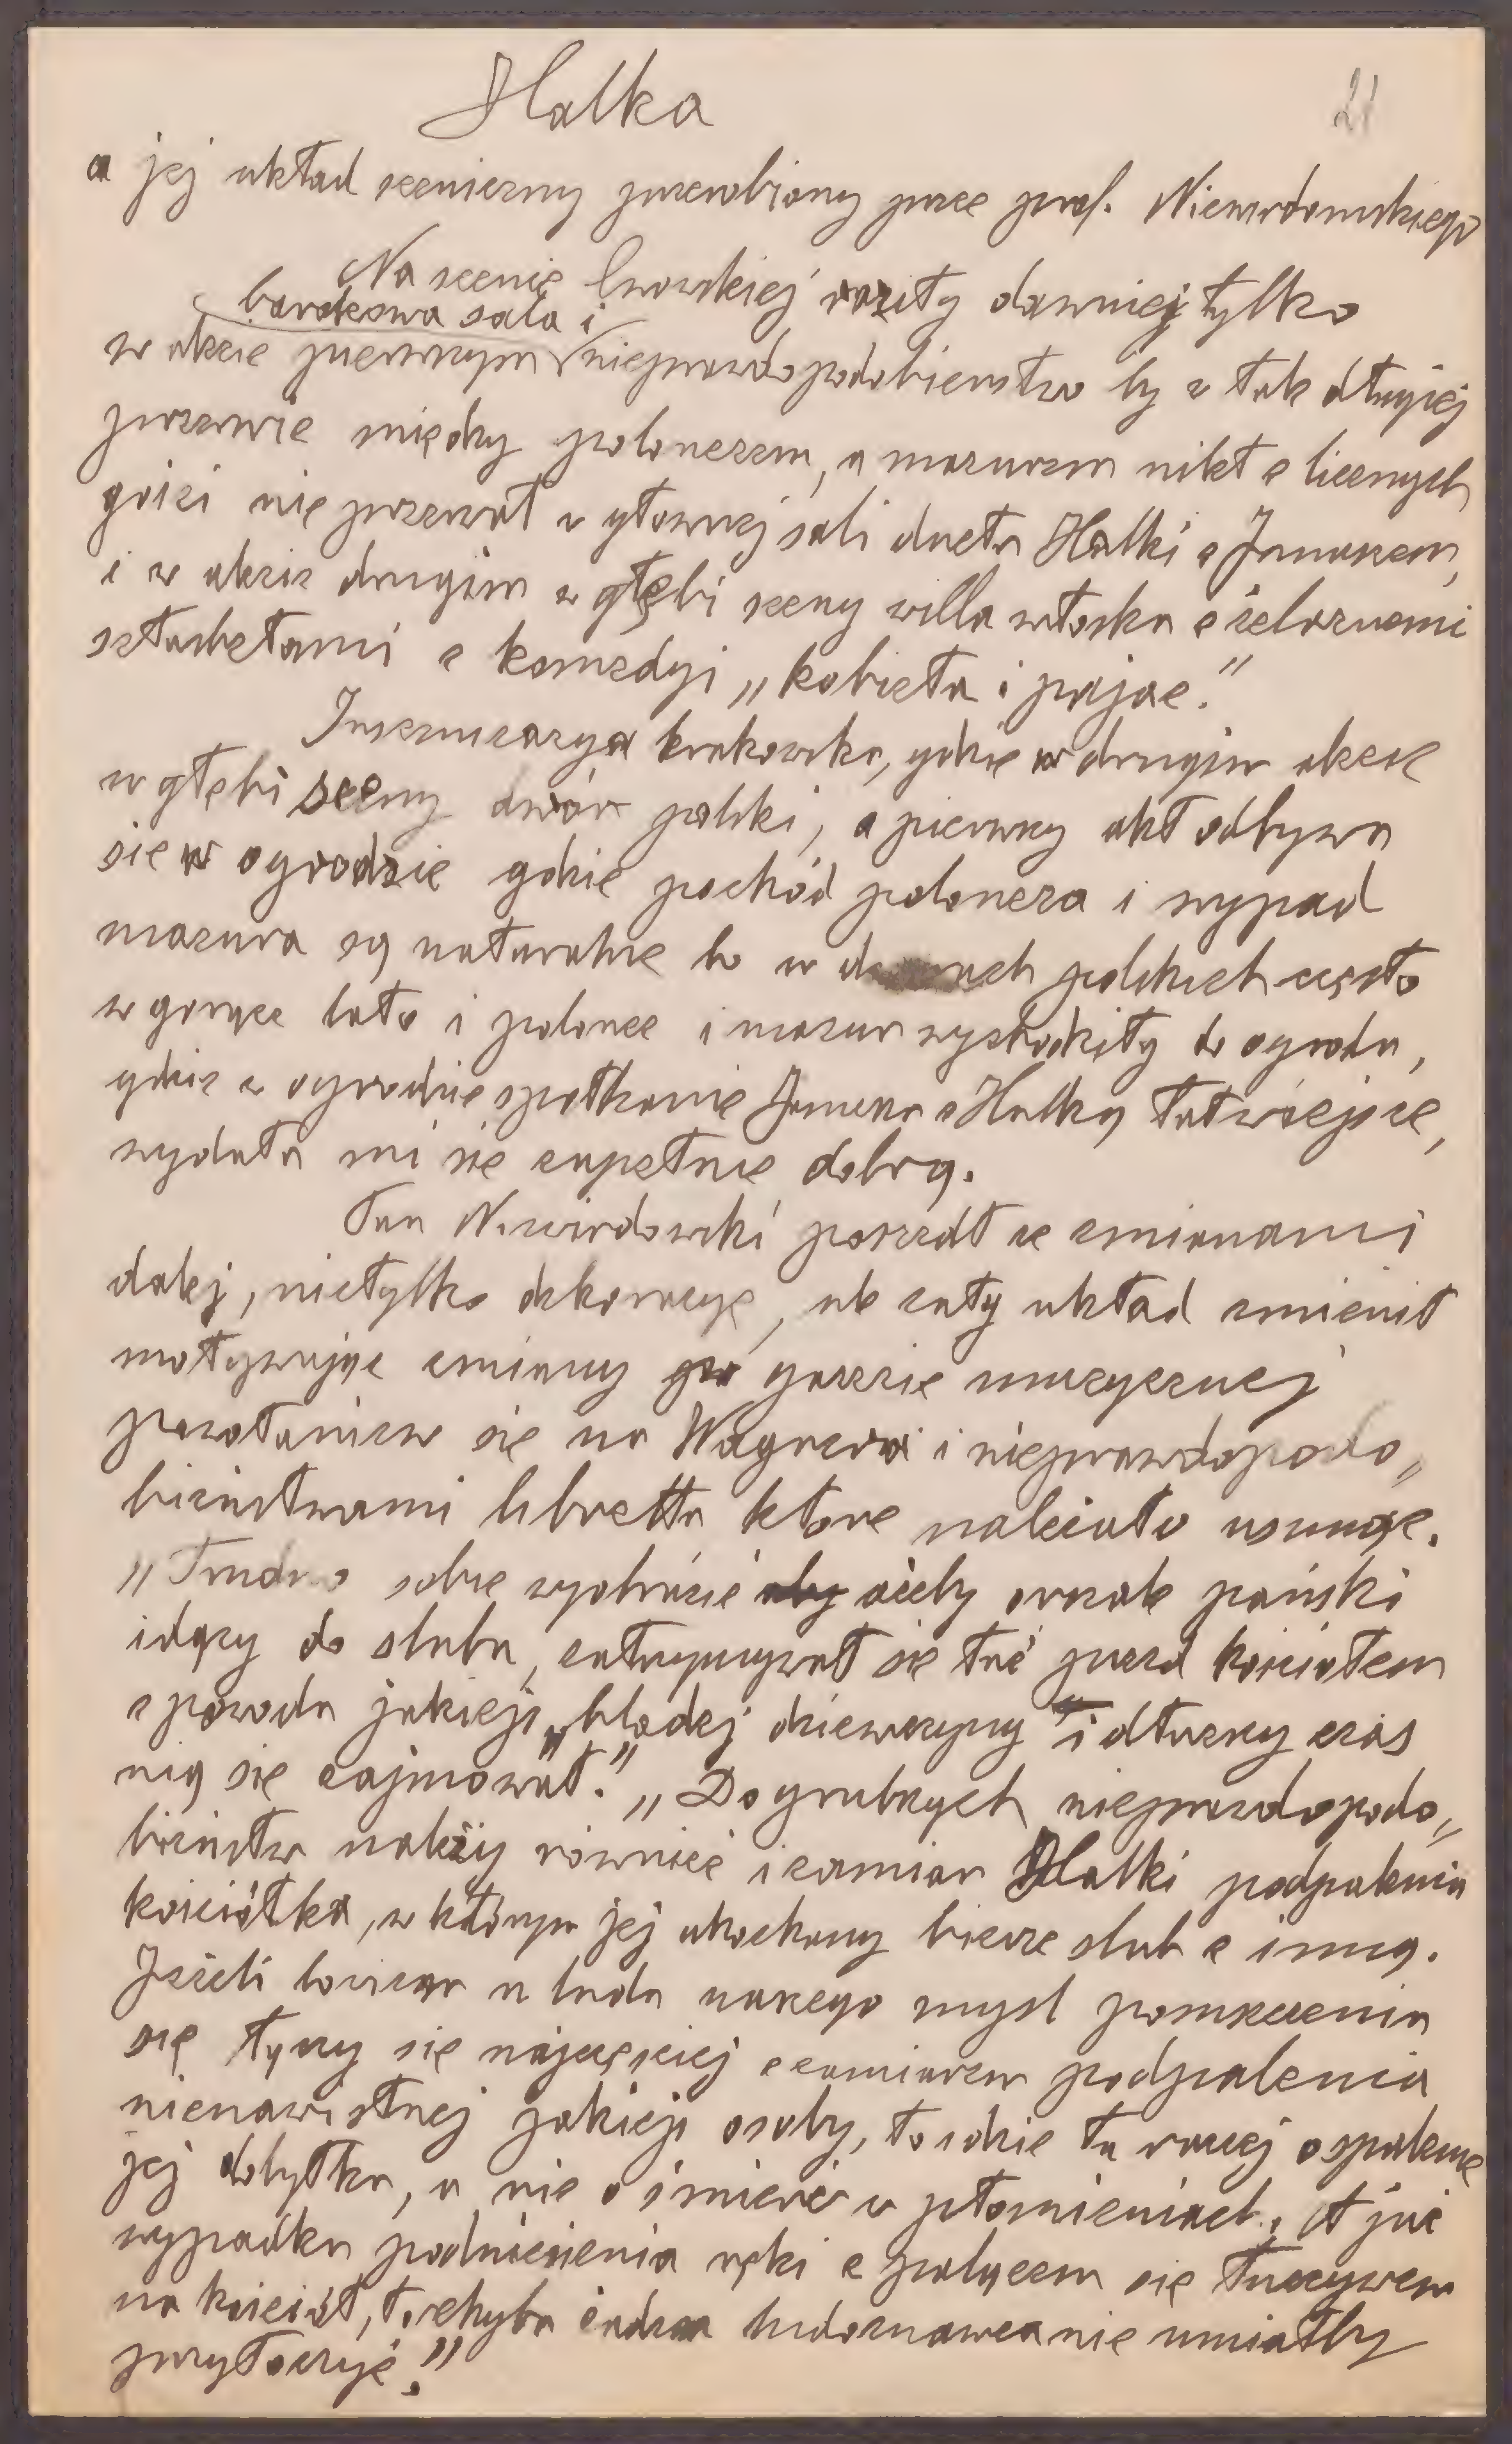 Halka
21
a jej układ sceniczny przerobiony przez prof. Niewiadomskiego
Na scenie lwowskiej raziły dawniej tylko
barokowa sala i
w akcie pierwszym nieprawdopodobieństwo by w tak długiej
przerwie między polonezem, a mazurem nikt z licznych
gości nie przerwał w głównej sali duetu Halki z Januszem,
i w akcie drugim w głębi sceny willa włoska z żelaznemi
sztachetami z komedyi „kobieta i pajac."
Inscenizacya krakowska, gdzie w drugim akcie
w głębi sceny dwór polski, a pierwszy akt odbywa
sie w ogrodzie gdzie pochód poloneza i wypad
mazura są naturalne bo w dworach polskich często
w gorące lato i polonez i mazur wychodziły do ogrodu,
gdzie w ogrodzie spotkanie Janusza z Halką łatwiejsze,
wydała mi się zupełnie dobrą.
Pan Niewiadowski poszedł ze zmianami
dalej, nietylko dekoracye, ale cały układ zmienił
motywując zmiany w gazecie muzycznej
powołaniem się na Wagnera i nieprawdopodo„
bieństwami libretta które należało usunąć.
„Trudno sobie wyobrazić aby ażeby orszak pański
idący do ślubu, zatrzymywał się tuż przed kościołem
z powodu jakiejś „bladej dziewczyny" i dłuższy czas
nią się zajmował." „Do grubszych nieprawdopodo„
bieństw należy również i zamiar Halki podpalenia
kościółka, w którym jej ukochany bierze ślub z inną.
Jeżeli bowiem u ludu naszego myśl pomszczenia
się łączy się najczęściej z zamiarem podpalenia
nienawistnej jakiejś osoby, to idzie tu raczej o spalenie
jej dobytku, a nie o śmierć w płomieniach. A już
wypadku podniesienia ręki z palącem się łuczywem
na kościół, to chyba żaden ludoznawca nie umiałby
przytoczyć!"